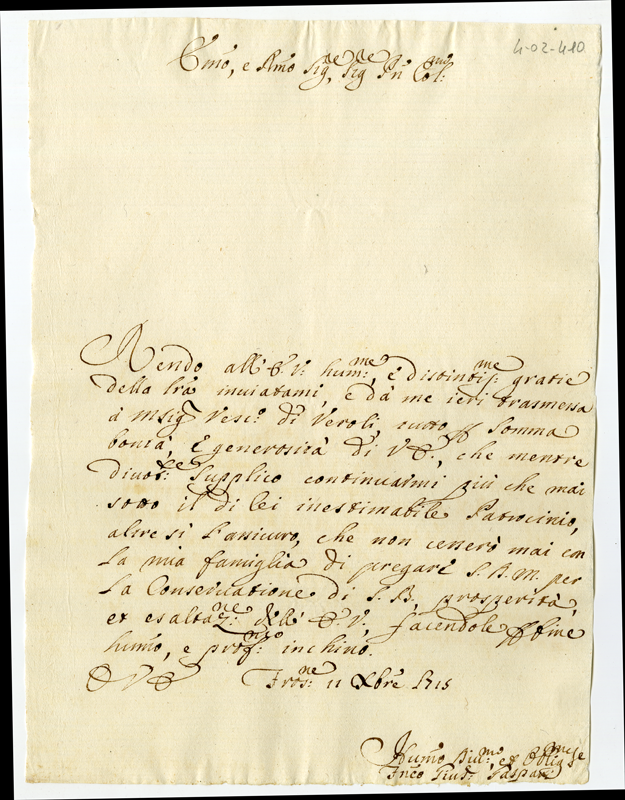 4-02-410
Emo, e Rmo Sig.re, Sig.re Pñ Col:mo
Rendo all' E: V: hum:me, e distintis:me gratie
della lrã inviatami, e da me ieri trasmessa
à Msig.r Vesc.o di Veroli, tutto p somma
bontà, e generosità di V E:, che mentre
divot:te supplico continuarmi più che mai
sotto il di lei inestimabile Patrocinio,
altresi l'assicuro, che non cesserò mai con
la mia famiglia di pregare S. D. M. per
la Conservatione di S. B, prosperità,
et esaltaz:ne dell' E: V, facendole p fine
humo, e prof:mo inchino.
D V E Fros:ne 11 Xbre 1715
Humo Div:mo et Oblig:mo Se